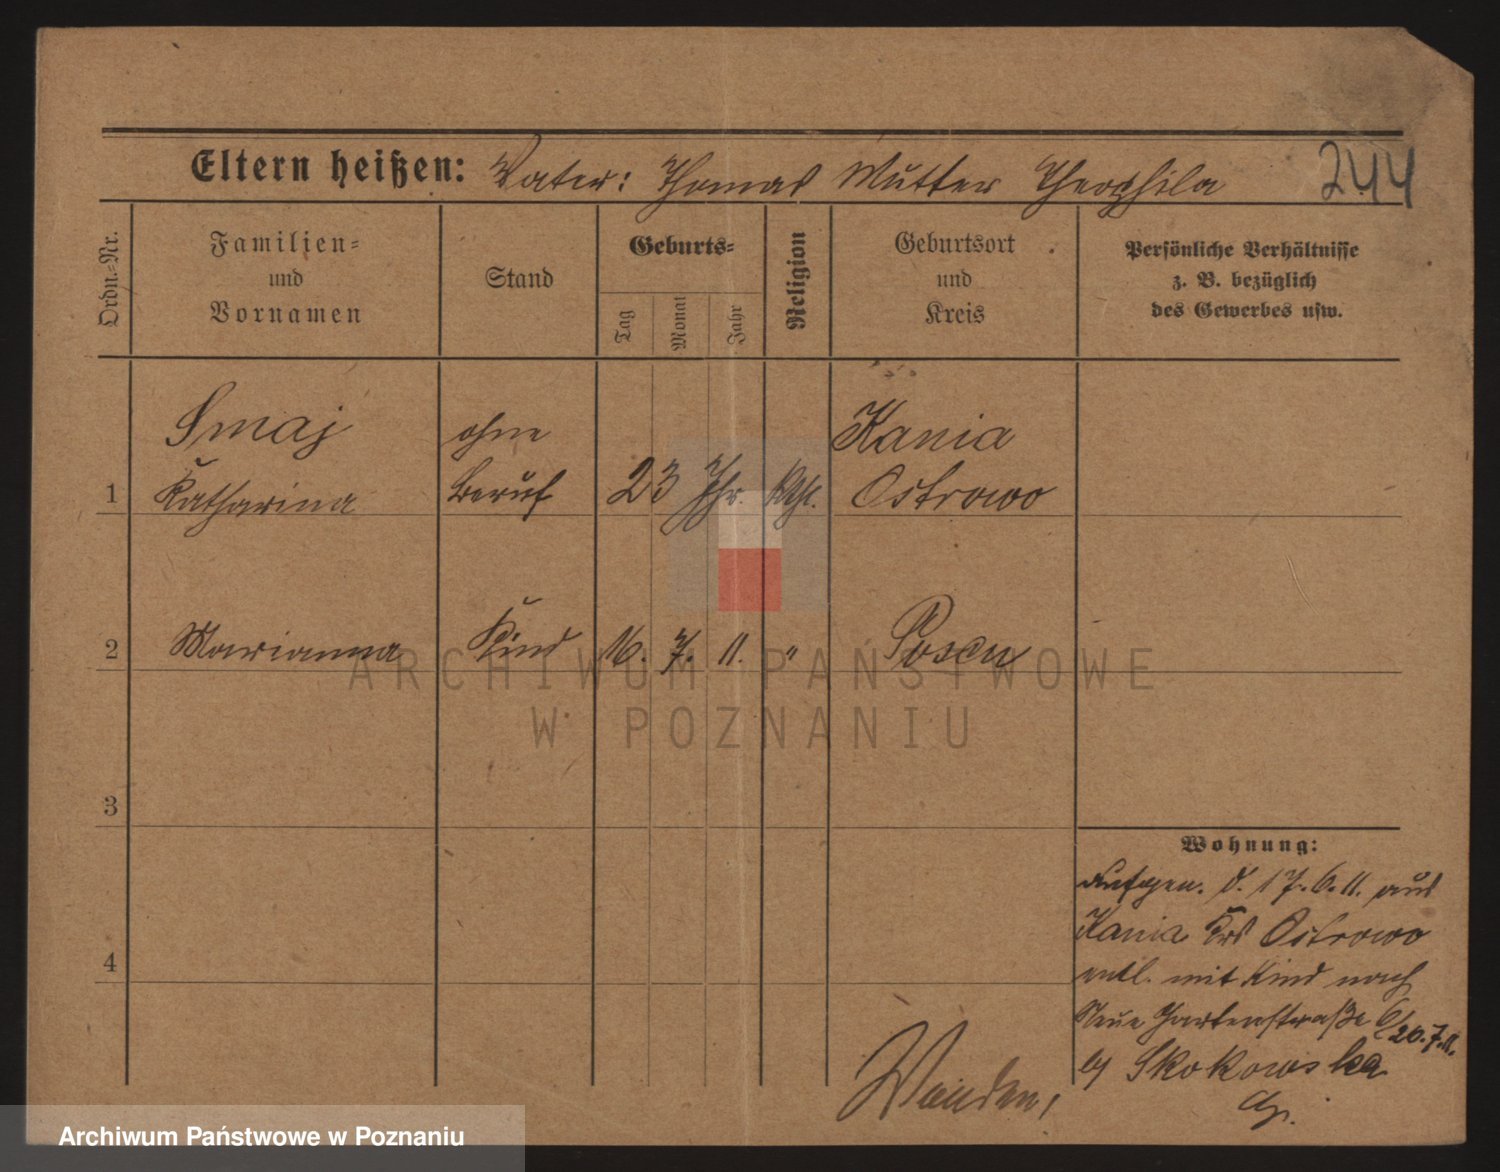 Eltern heißen: Vater: Thomas Mutter Theophila 244
Ordn.=Nr.
Familien=
und
Vornamen
Stand
Geburts=
Tag
Monat
Jahr
Religion
Geburtsort
und
Kreis
Persönliche Verhältnisse
z. B. bezüglich
des Gewerbes usw.
Smaj ohne Kania
1 Katharina Beruf 23 Jhr. kth. Ostrowo
2 Marianna Kind 16. 7. 11. " Posen
3
4
Wohnung:
Aufgen. d. 17.6.11. aus
Kania Krs Ostrowo
entl. mit Kind nach
Neue Gartenstraße 6/
20.7.11.
by Skokowska
ARCHIWUM PAŃSTWOWE
W POZNANIU
Archiwum Państwowe w Poznaniu